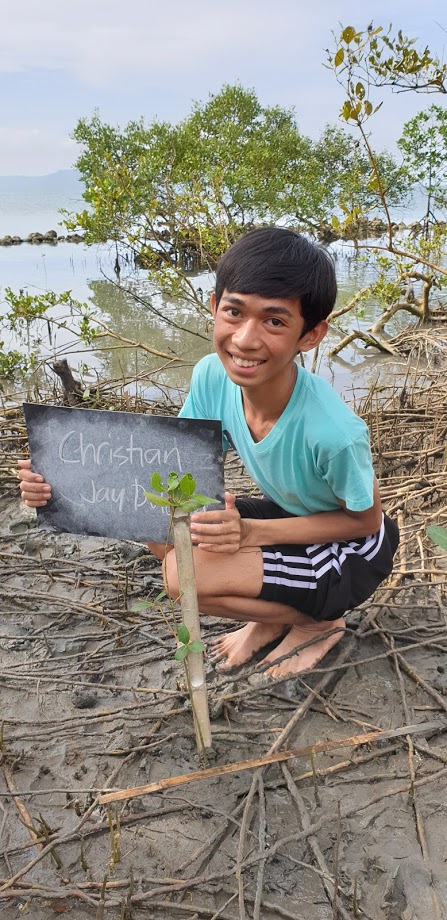 Christian
Jay